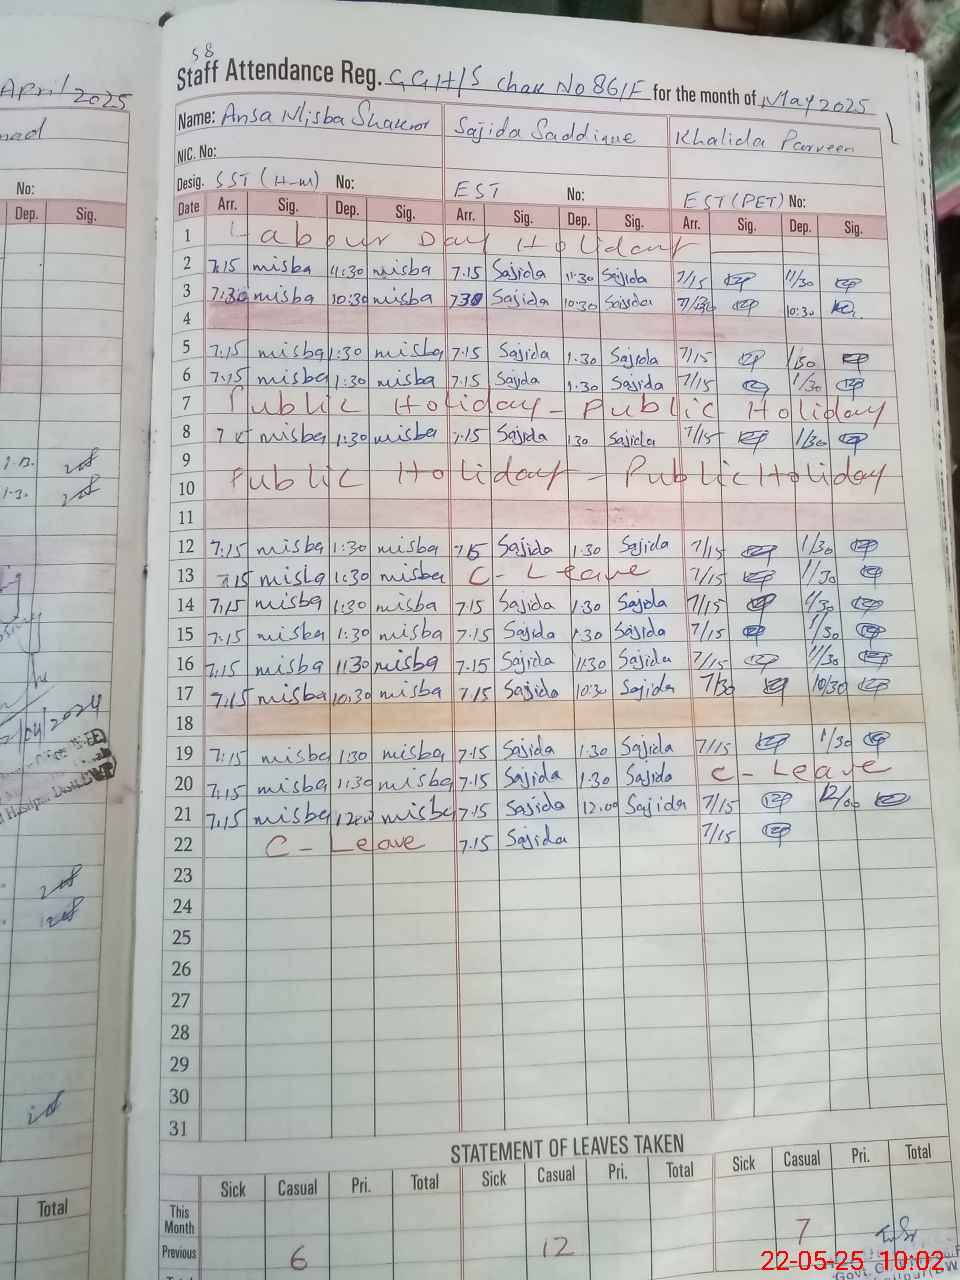 April 2025
No:
Dep. Sig.
Total
58
Staff Attendance Reg. G.G.H/S Chak No 86/F for the month of May 2025
Name: Ansa Misba Shakoor Sajida Saddique Khalida Parveen
NIC. No:
Desig. SST (H-M) No: EST No: EST (PET) No:
Date Arr. Sig. Dep. Sig. Arr. Sig. Dep. Sig. Arr. Sig. Dep. Sig.
1 Labour Day Holiday
2 7:15 misba 11:30 misba 7.15 Sajida 11.30 Sajida 7/15 11/30
3 7:30 misba 10:30 misba 730 Sajida 10:30 Sajida 7/30 10:30
4
5 7:15 misba 1:30 misba 7.15 Sajida 1.30 Sajida 7/15 1/30
6 7:15 misba 1:30 misba 7.15 Sajida 1:30 Sajida 7/15 1/30
7 Public Holiday - Public Holiday
8 misba 1:30 misba 7.15 Sajida 1.30 Sajida 7/15 1/30
9
10 Public Holiday - Public Holiday
11
12 7:15 misba 1:30 misba 7.15 Sajida 1.30 Sajida 7/15 1/30
13 7:15 misba 1:30 misba C- Leave 7/15 1/30
14 7:15 misba 1:30 misba 7.15 Sajida 1:30 Sajida 7/15 1/30
15 7:15 misba 1:30 misba 7.15 Sajida 1:30 Sajida 7/15 1/30
16 7:15 misba 11:30 misba 7.15 Sajida 11:30 Sajida 7/15 11/30
17 7:15 misba 10:30 misba 7.15 Sajida 10:30 Sajida 7/30 10/30
18
19 7:15 misba 1:30 misba 7.15 Sajida 1.30 Sajida 7/15 1/30
20 7:15 misba 1:30 misba 7.15 Sajida 1.30 Sajida C- Leave
21 7:15 misba 12:00 misba 7.15 Sajida 12.00 Sajida 7/15 12/00
22 C- Leave 7.15 Sajida 7/15
23
24
25
26
27
28
29
30
31
STATEMENT OF LEAVES TAKEN
Sick Casual Pri. Total Sick Casual Pri. Total Sick Casual Pri. Total
This Month
Previous 6 12 7
22-05-25 10:02